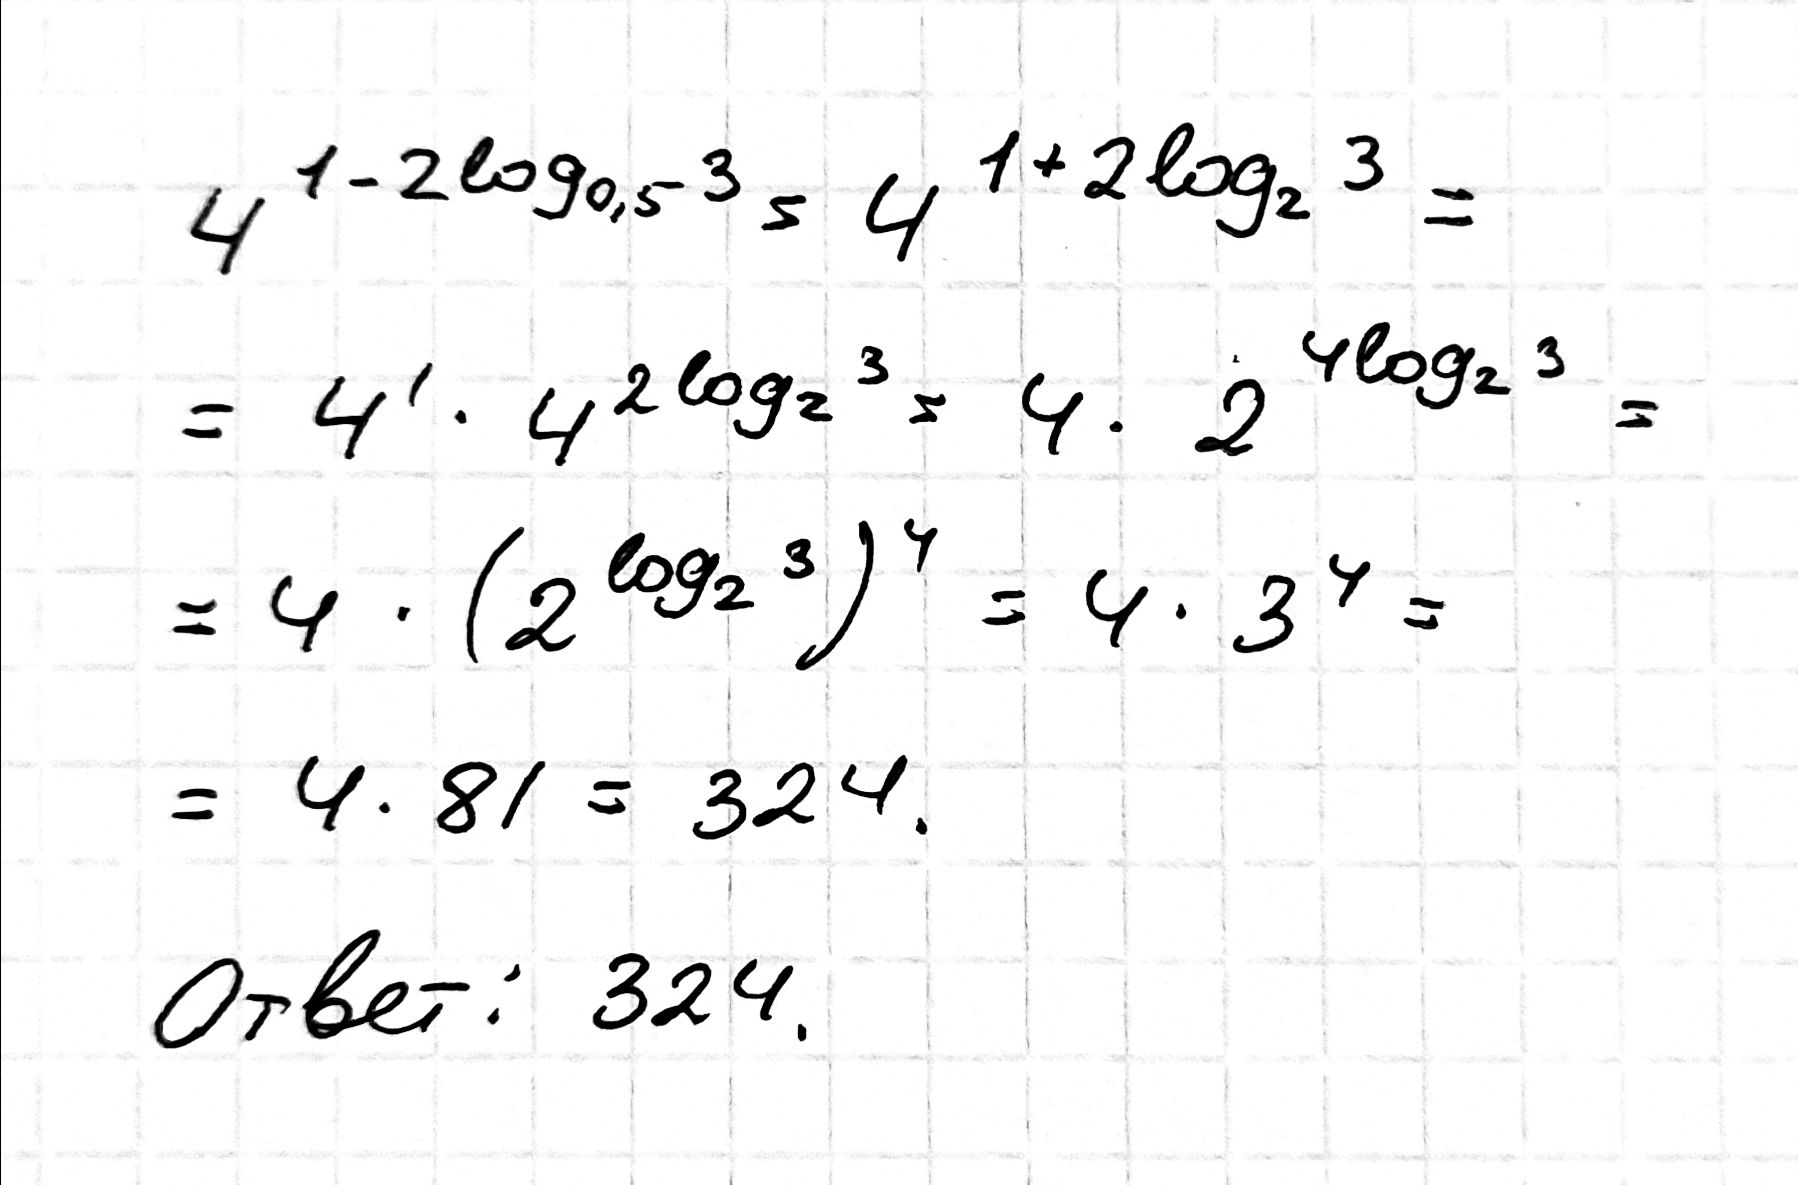 4^{1-2log_{0,5}3} = 4^{1+2log_2 3} =
= 4^1 · 4^{2log_2 3} = 4 · 2^{4log_2 3} =
= 4 · (2^{log_2 3})^4 = 4 · 3^4 =
= 4 · 81 = 324.
Ответ: 324.